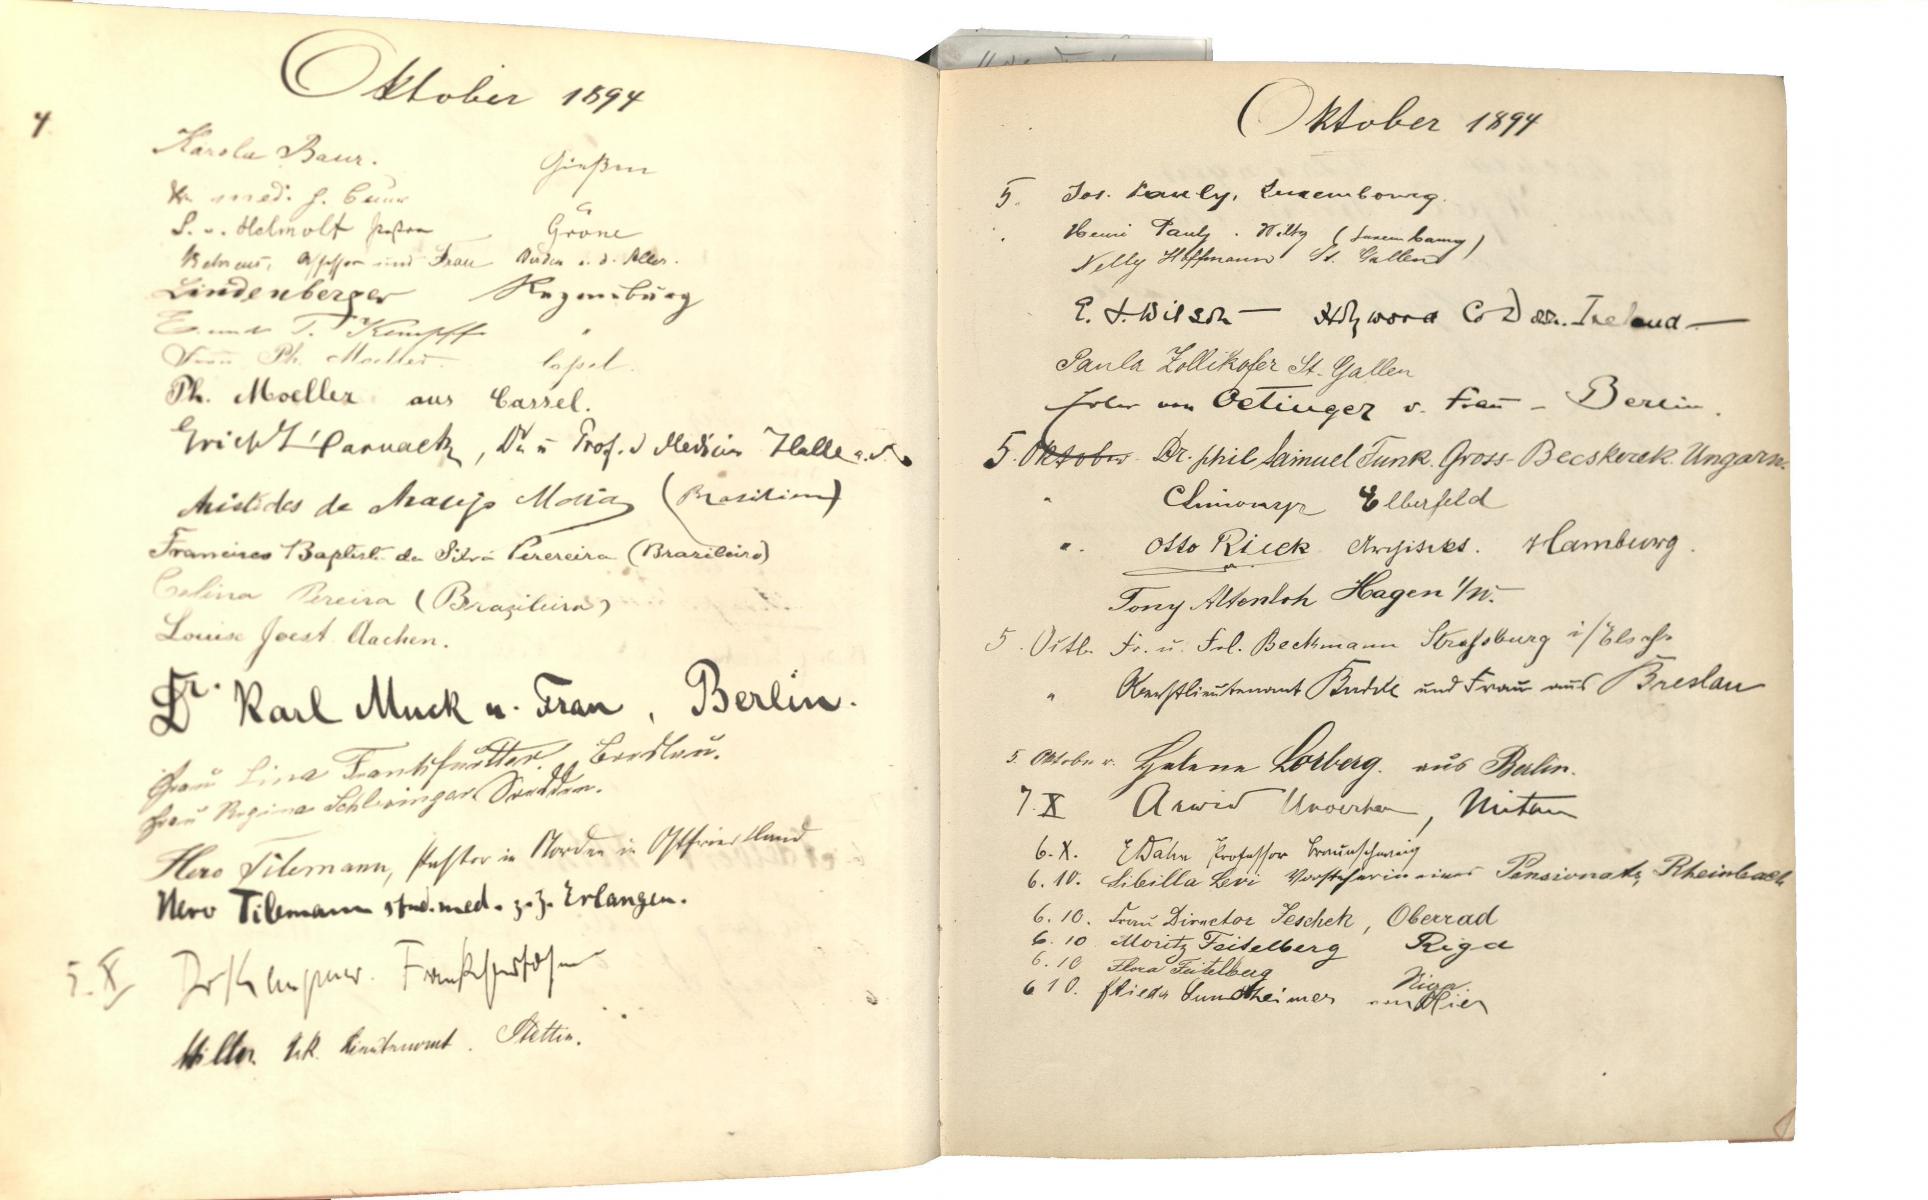 Oktober 1894
4
Karola Baur. Gießen
Dr. med. G. Baur
S. v. Helmolt Gröne
Behrens, Assessor und Frau Verden a. d. Aller.
Lindenberger Regensburg
E. und T. Kempff "
Frau Ph. Moeller Cassel.
Ph. Moeller aus Cassel.
Erich Harnack, Dr. u Prof. d Medicin Halle a. S.
Aristides de Araujo Maia (Brasilien)
Francisco Baptista da Silva Perereira (Brazileiro)
Celina Pereira (Brazileira)
Louise Joest. Aachen.
Dr. Karl Muck u. Frau, Berlin.
Frau Lina Frankfurther, Breslau.
Frau Regina Schlesinger
Hero Tilemann, Pastor in Norden in Ostfriesland
Hero Tilemann stud. med. z. Z. Erlangen.
5. X
Lieutenant. Stettin.
Oktober 1894
5. Jos. Pauly, Luxembourg.
Henri Pauly. Wiltz (Luxembourg)
Nelly Hoffmann St. Gallen
E. J. Wilson — Holywood Co Down. Ireland —
Paula Zollikofer St. Gallen
von Oetinger u. Frau – Berlin.
5. Oktober Dr. phil Samuel Funk. Gross-Becskerek. Ungarn.
" Elberfeld
". Otto Rieck Hamburg.
Tony Altenloh Hagen i/W.
5. Octb. Fr. u. Frl. Beckmann Strassburg i/Elsass
" Oberstlieutenant Budde und Frau aus Breslau
5. Oktober Helene Lorberg. aus Berlin.
7. X Arwid Mitau
6. X. Professor Braunschweig
6. 10. Sibilla Levi Vorsteherin eines Pensionats, Rheinbach
6. 10. Frau Director Jeschek, Oberrad
6. 10 Moritz Feitelberg Riga
6. 10 Flora Feitelberg Riga.
6 10. Frieda Sundheimer von Hier